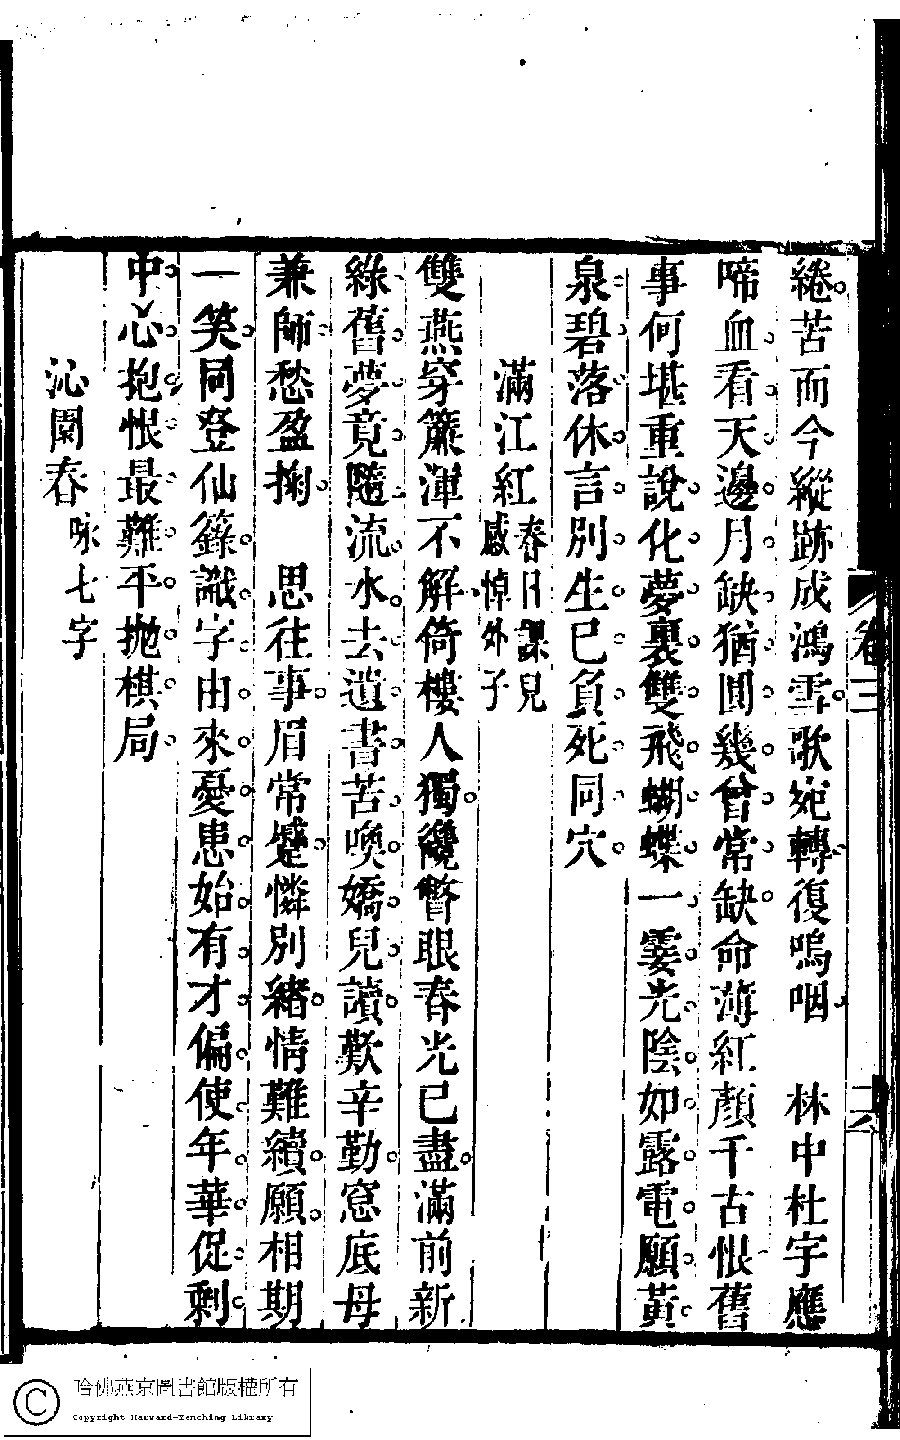 綣苦而今縱跡成鴻雪歌宛轉復嗚咽　林中杜宇應
啼血看天邊月缺猶圓幾曾常缺命薄紅顏千古恨舊
事何堪重說化夢裏雙飛蝴蝶一霎光陰如露電願黃
泉碧落休言別生已負死同穴
滿江紅春日課兒感悼外子
雙燕穿簾渾不解倚樓人獨纔瞥眼春光已盡滿前新
綠舊夢竟隨流水去遺書苦喚嬌兒讀歎辛勤窓底母
兼師愁盈掬　思往事眉常蹙憐別緒情難續願相期
一笑同登仙籙識字由來憂患始有才偏使年華促剩
中心抱恨最難平拋棋局
沁園春咏七字
卷三
六
哈佛燕京圖書館版權所有
Copyright Harvard-Yenching Library